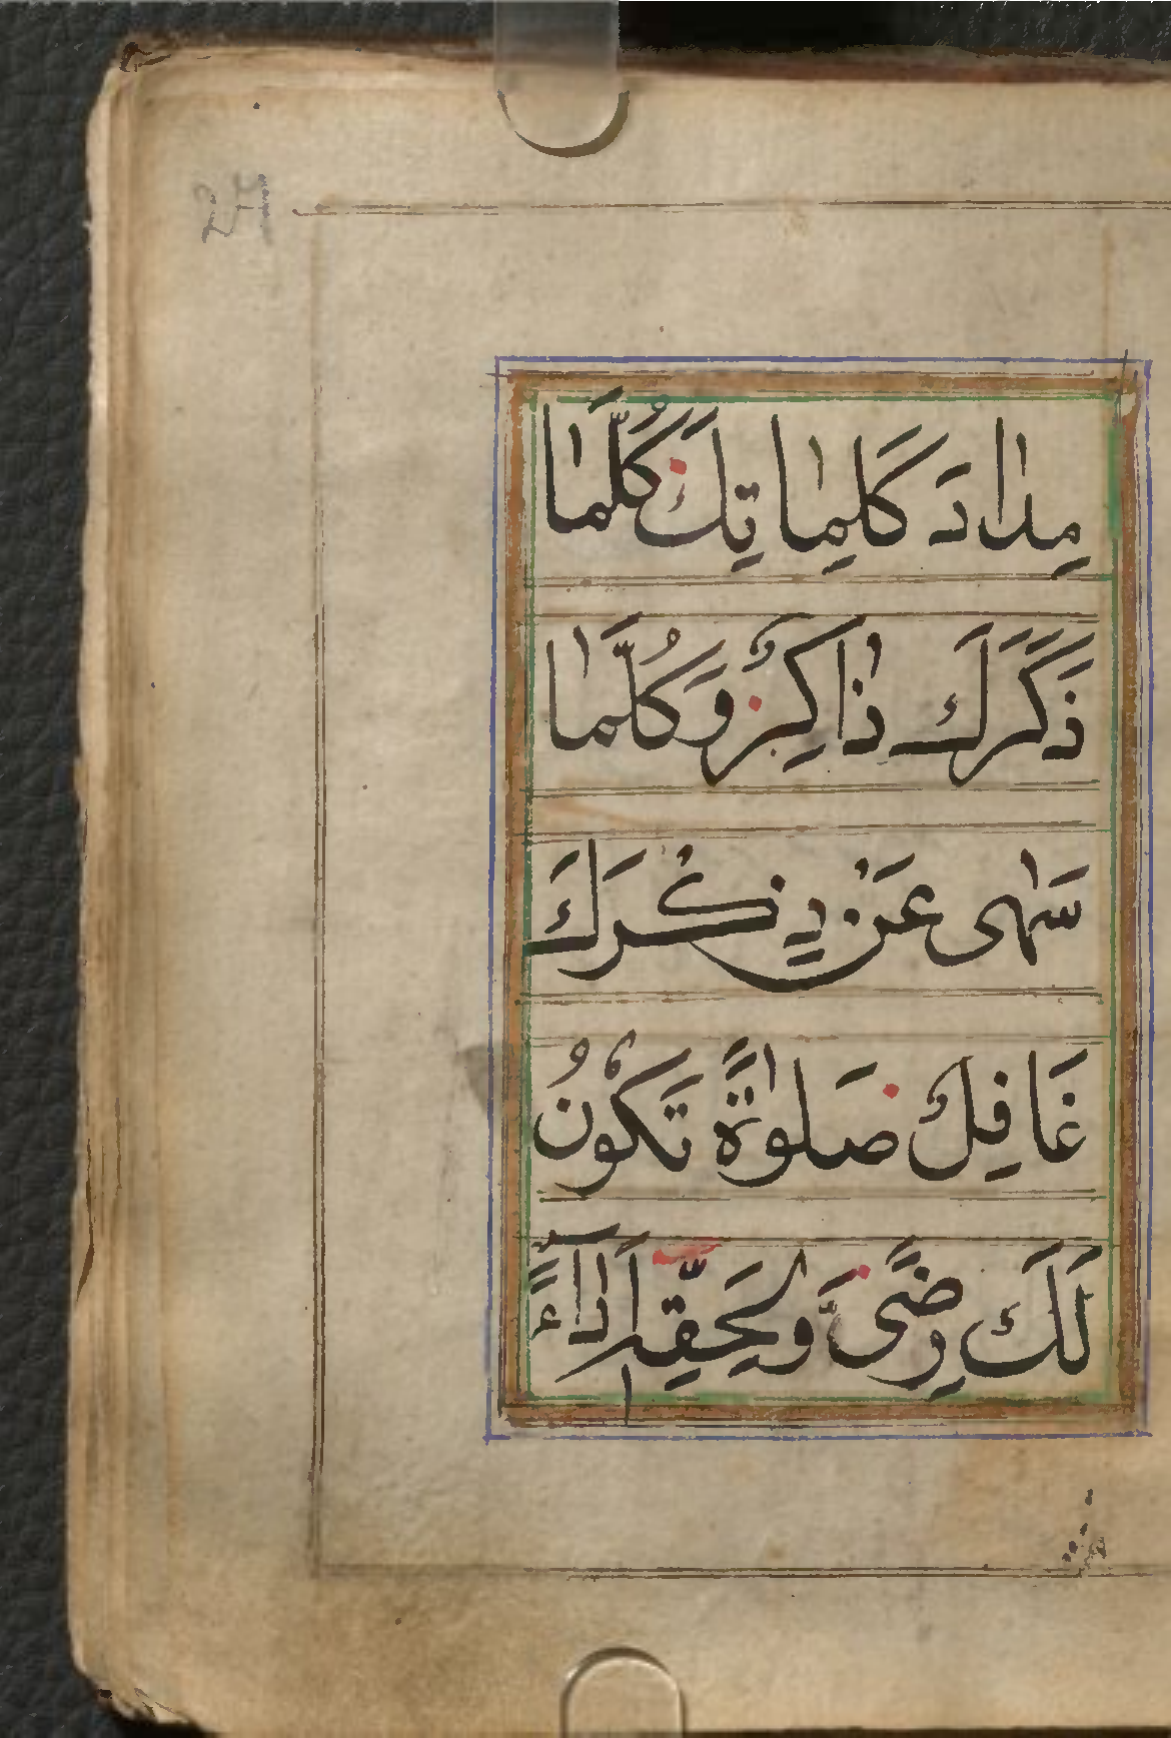 مِدٰادَ كَلِمٰاتِكَ كُلَّمٰا
ذَكَرَكَ ذٰاكِرٌ وَكُلَّمٰا
سَهٰى عَنْ ذِكْرِكَ
غَافِلٌ صَلٰوةً تَكُوْنُ
لَكَ رِضًى وَلِحَقِّهٖ اَدٰاءً